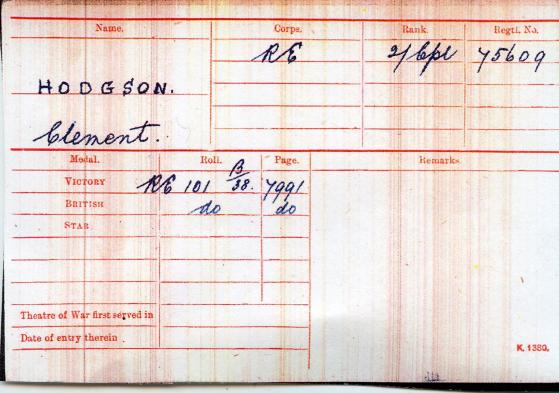 Name. Corps. Rank. Regtl. No.
RE 2/Cpl 75609
HODGSON.
Clement.
Medal. Roll. Page. Remarks.
VICTORY RE 101 B/38. 7991
BRITISH do do
STAR
Theatre of War first served in
Date of entry therein .
K. 1380.